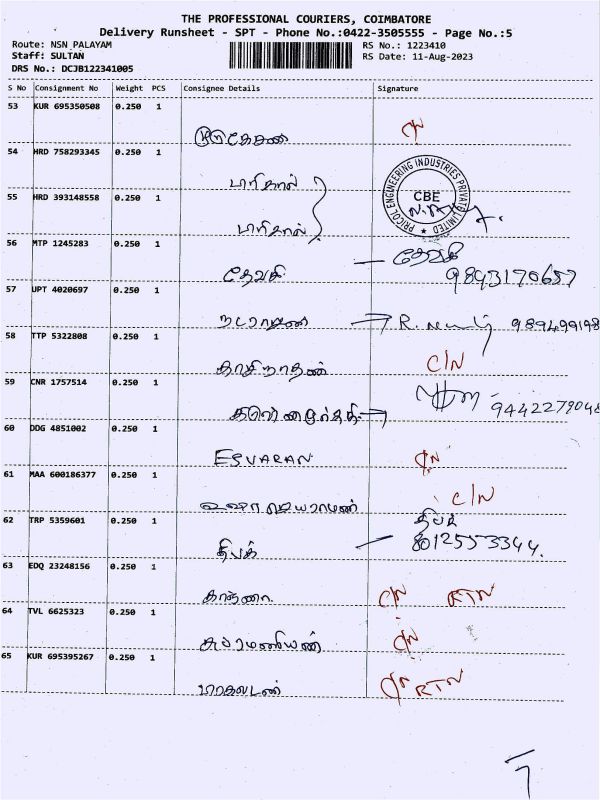 THE PROFESSIONAL COURIERS, COIMBATORE
Delivery Runsheet - SPT - Phone No.:0422-3505555 - Page No.:5
Route: NSN_PALAYAM RS No.: 1223410
Staff: SULTAN RS Date: 11-Aug-2023
DRS No.: DCJB122341005
S No Consignment No Weight PCS Consignee Details Signature
53 KUR 695350508 0.250 1
54 HRD 758293345 0.250 1
PRICOL ENGINEERING INDUSTRIES PRIVATE LIMITED
CBE
55 HRD 393148558 0.250 1
56 MTP 1245283 0.250 1
தேவகி தேவகி
9893170657
57 UPT 4020697 0.250 1
நடராஜன் R. 989499198
58 TTP 5322808 0.250 1
காசிநாதன் C/N
59 CNR 1757514 0.250 1
9442279048
60 DDG 4851002 0.250 1
ESVARAN C/N
61 MAA 600186377 0.250 1
C/N
62 TRP 5359601 0.250 1
தீபக்
தீபக் 8012553344.
63 EDQ 23248156 0.250 1
C/N RTN
64 TVL 6625323 0.250 1
சுப்ரமணியன் C/N
65 KUR 695395267 0.250 1
C/N RTN